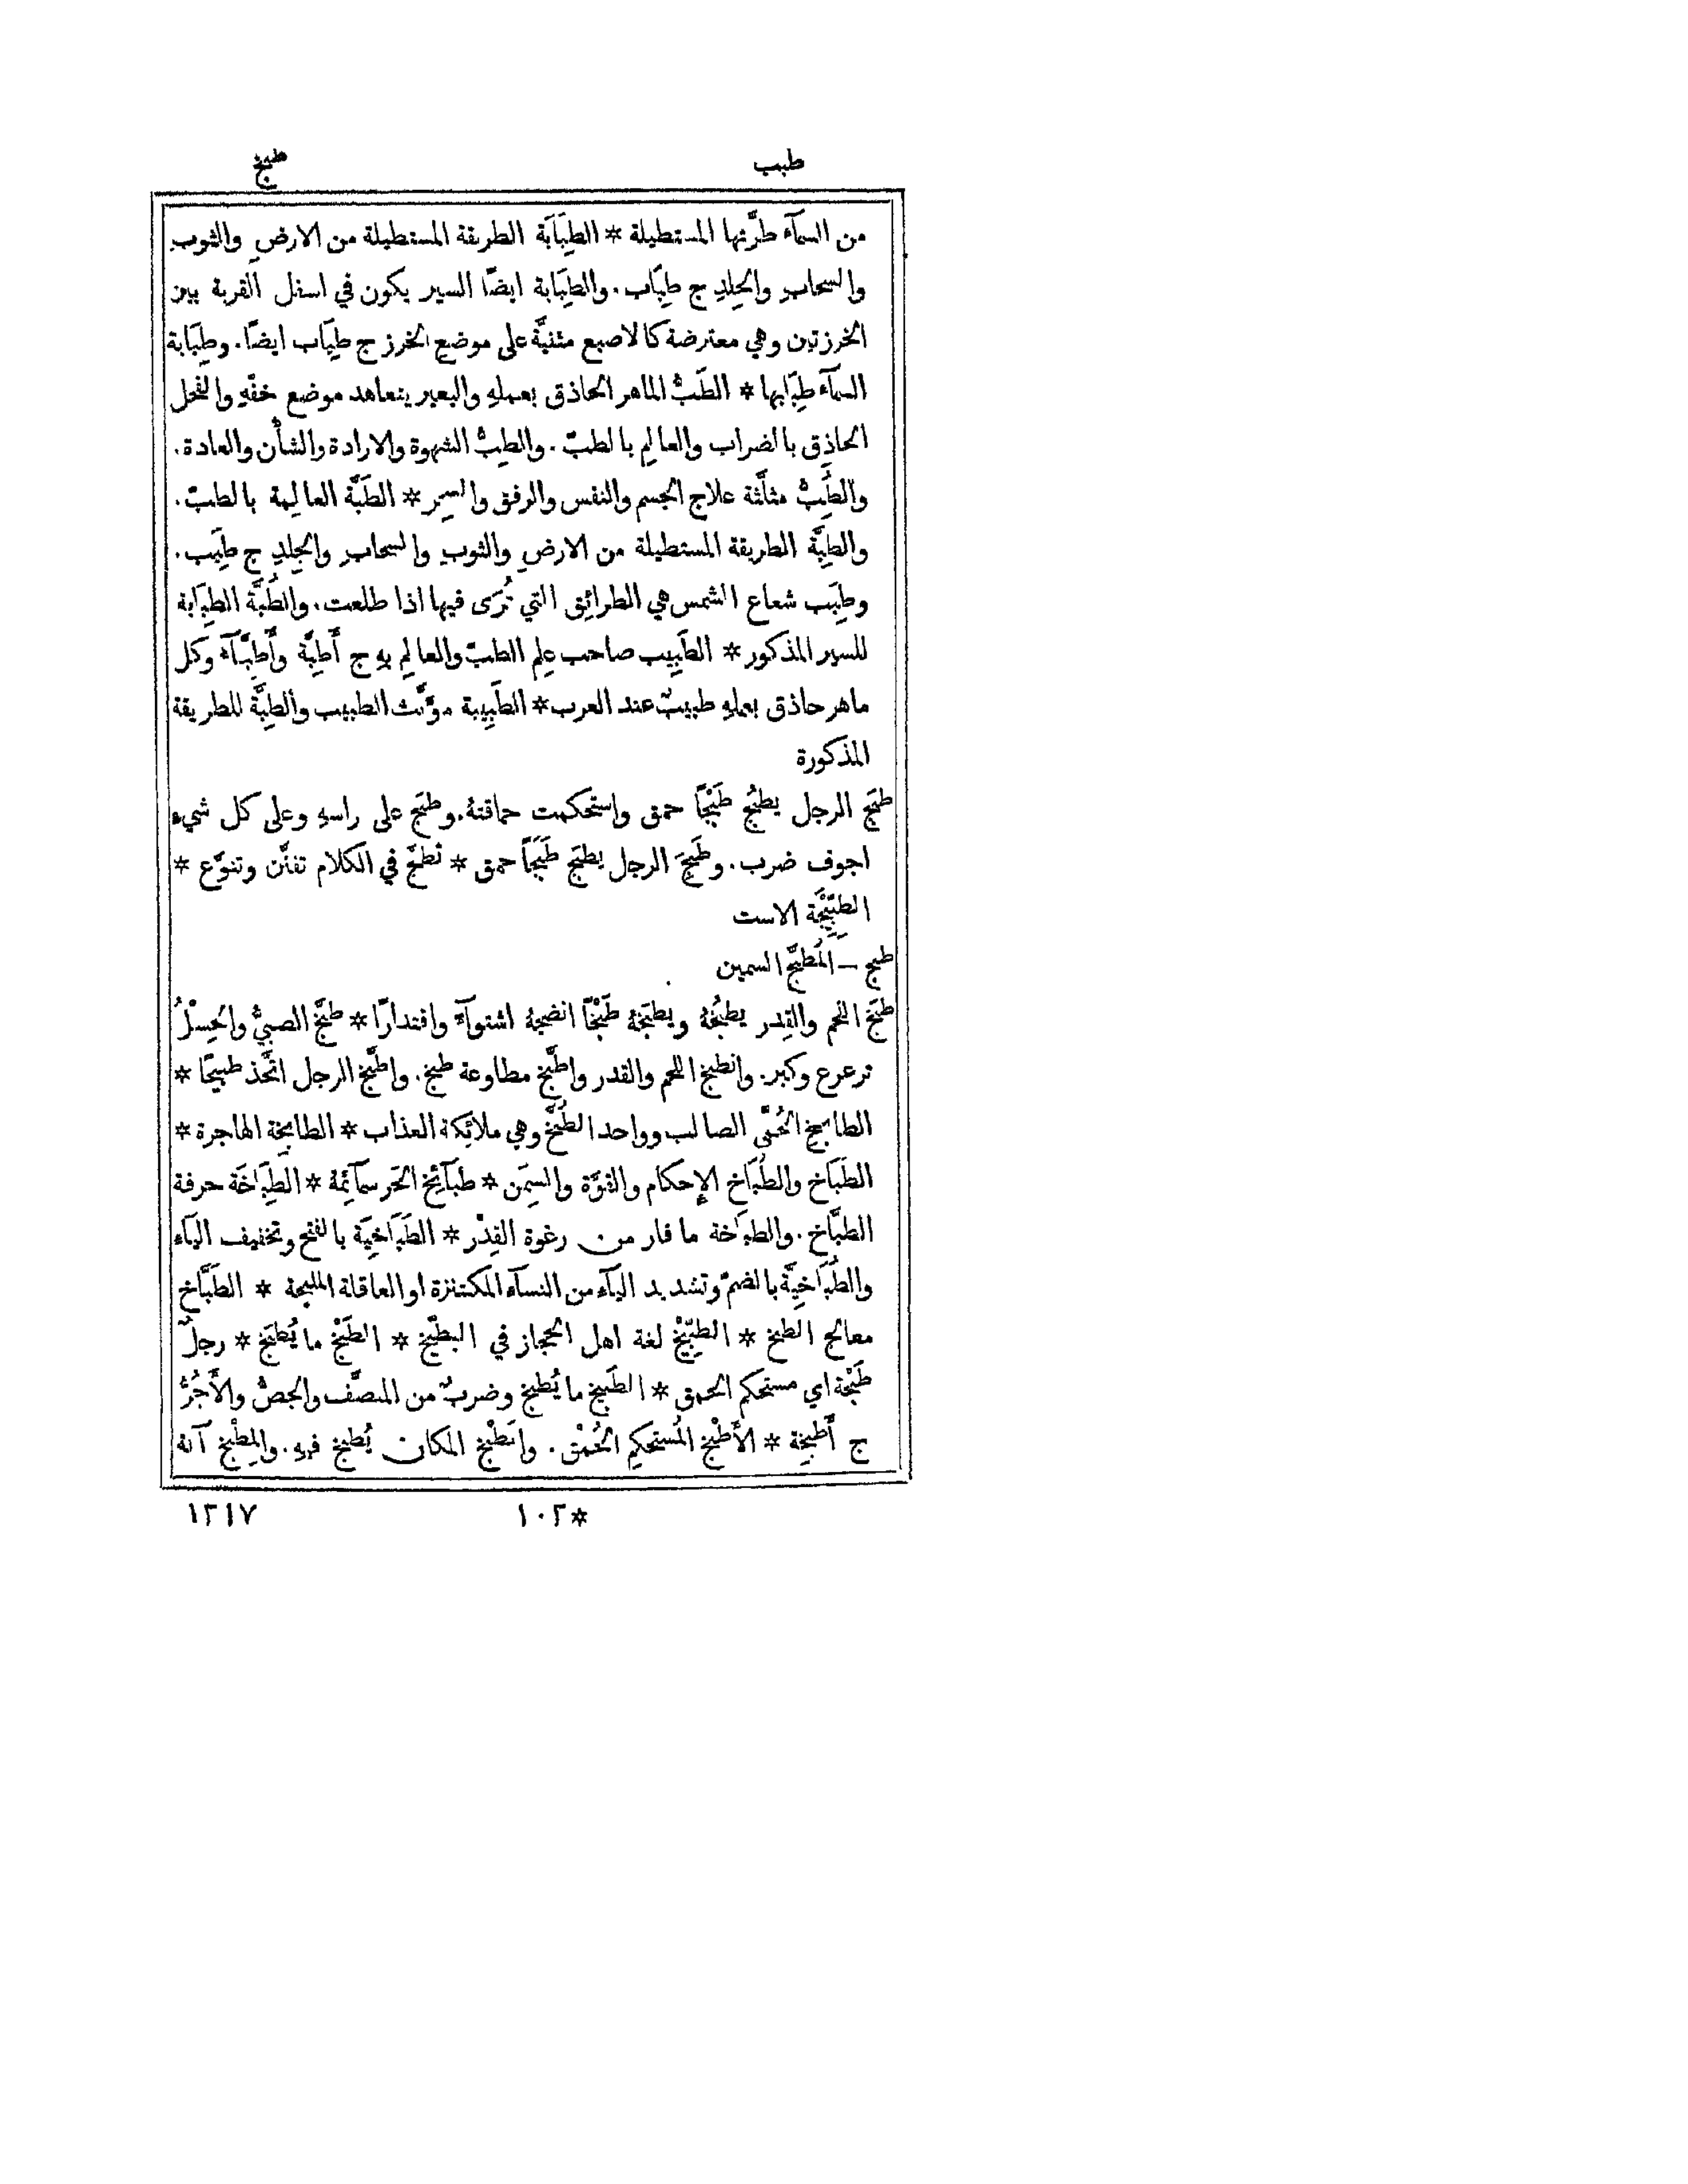 طبب طبخ
من السمآء طرَّتها المستطيلة * الطِبَابَة الطريقة المستطيلة من الارضِ والثوبِ
والسحابِ والجِلدِ ج طِبَاب. والطِبَابة ايضًا السير يكون في اسفل القربة بين
الخرزتين وهي معترضة كالاصبع مثنيَّة على موضع الخرز ج طِبَاب ايضًا. وطِبَابة
السمآء طِبَابها * الطَبُّ الماهر الحاذق بعملهِ والبعير يتعاهد موضع خفّهِ والفحل
الحاذِق بالضراب والعالِم بالطبّ. والطِبُّ الشهوة والارادة والشأْن والعادة.
والطَِبُّ مثلَّثة علاج الجسم والنفس والرفق والسِحر * الطَبَّة العالِمة بالطبّ.
والطِبَّة الطريقة المستطيلة من الارضِ والثوبِ والسحابِ والجِلدِ ج طِبَب.
وطِبَب شعاع الشمس هي الطرائِق التي تُرَى فيها اذا طلعت. والطُبَّة الطِبَابة
للسير المذكور * الطَبِيب صاحب عِلم الطبّ والعالِم بهِ ج أَطِبَّة وأَطِبَّآء وكل
ماهر حاذق بعملهِ طبيبٌ عند العرب * الطَبِيبة مؤَنَّث الطبيب والطِبَّة للطريقة
المذكورة
طبَج الرجل يطبُج طَبْجًا حمق واستحكمت حماقتهُ. وطبَج على راسهِ وعلى كل شيءٍ
اجوف ضرب. وطَبِجَ الرجل يطبَج طَبَجًا حمق * تطبَّج في الكلام تفنَّن وتنوَّع *
الطِبِّيْجَة الاست
طبج – المُطبَّج السمين
طبَخ اللحم والقِدر يطبُخهُ ويطبَخهُ طَبْخًا انضجهُ اشتوآءً واقتدارًا * طبَّخ الصبيُّ والحِسْلُ
ترعرع وكبر. وانطبخ اللحم والقدر واطَّبخ مطاوعة طبخ. واطَّبخ الرجل اتَّخذ طبيخًا *
الطابخ الحُمَّى الصالب وواحد الطُبَّخ وهي ملائِكة العذاب * الطابخة الهاجرة *
الطَبَاخ والطُبَاخ الإِحكام والقوَّة والسِمَن * طبَآئِخ الحَر سمآئِمهُ * الطِبَاخَة حرفة
الطبَّاخ. والطبَاخة ما فار من رغوة القِدْر * الطَبَاخِيَة بالفتح وتخفيف اليَآء
والطُبَاخِيَّة بالضمّ وتشديد اليَآء من النسآء المكتنزة او العاقلة المليحة * الطَبَّاخ
معالج الطبخ * الطِبِّيْخ لغة اهل الحجاز في البطِّيخ * الطَبْخ ما يُطبَخ * رجلٌ
طَبْخَة اي مستحكم الحمق * الطَبِيخ ما يُطبخ وضربٌ من المنصَّف والجصُّ والأَجُرُّ
ج أَطبِخة * الأَطْبَخ المُستحكِم الحُمْق. وانطَبْخ المكان يُطبخ فيهِ. والمِطْبَخ آلة
*١٠٢ ١٢١٧